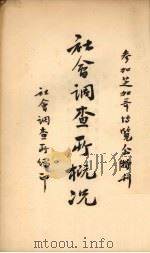 參加芝加哥博覽會特刊
社會調查所概况
社會調查所編印
www.ertongbook.com